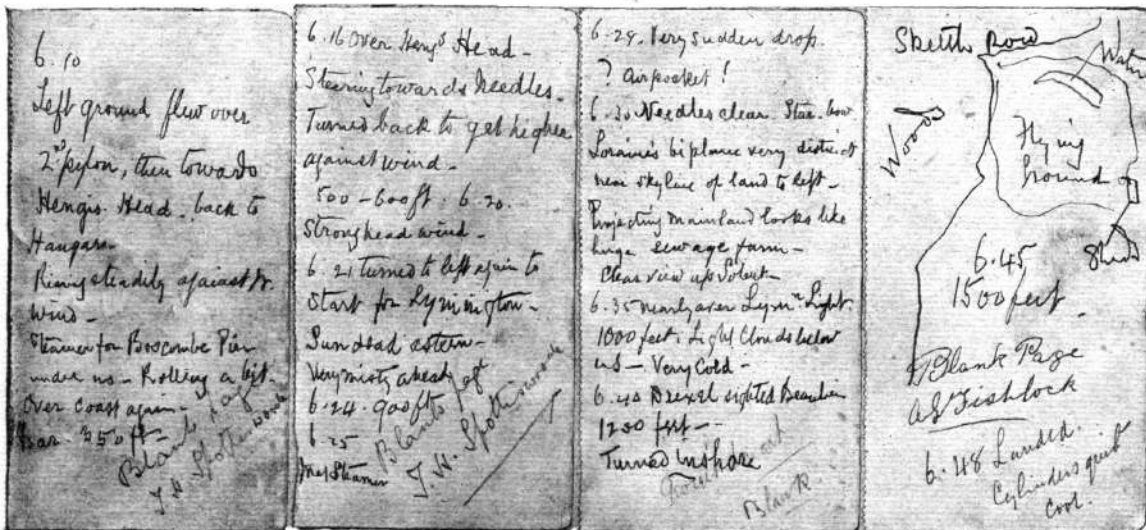 6.10
Left ground flew over
2nd pylon, then towards
Hengis. Head. back to
Hangars.
Rising steadily against
wind -
Steamer for Boscombe Pier
under us - Rolling a bit.
Over coast again -
Bar. 350 ft -
Blank Page
J. H. Spottiswoode
6.16 Over Hengs Head -
Steering towards Needles.
Turned back to get higher
against wind -
500 - 600 ft. 6.20.
Strong head wind -
6.21 turned to left again to
start for Lymington -
Sun dead astern -
Very misty ahead
6.24. 900 ft
6.25
Steamer
Blank Page
J. H. Spottiswoode
6.29. Very sudden drop.
? Air pocket!
6.30 Needles clear. Star. bow
Loraine's biplane very distinct
near skyline of land to left -
Projecting mainland looks like
huge sewage farm -
Clear view up Solent -
6.35 nearly over Lymn Light.
1000 feet. Light Clouds below
us - Very Cold -
6.40 Drexel sighted Beaulieu
1200 feet --
Turned inshore
Blank
Sketch Row
Water
Woods
Flying
Ground
Sheds
6.45
1500 feet
Blank Page
AG Fishlock
6.48 Landed.
Cylinders quite
cool.